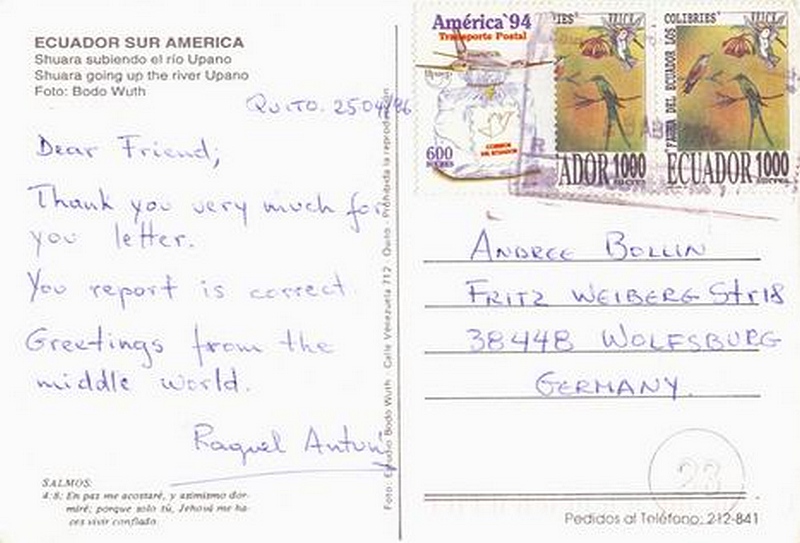 ECUADOR SUR AMERICA
Shuara subiendo el río Upano
Shuara going up the river Upano
Foto: Bodo Wuth
QUITO. 25 04/96
Dear Friend;
Thank you very much for
you letter.
You report is correct.
Greetings from the
middle world.
Raquel
SALMOS:
4:8; En paz me acostaré, y asimismo dor-
miré; porque solo tú, Jehová me ha-
ces vivir confiado
Foto: Estudio Bodo Wuth - Calle Venezuela 712 - Quito - Prohibida la reproducción
América '94
Transporte Postal
600
SUCRES
CORREOS
DEL ECUADOR
ADOR 1000
SUCRES
COLIBRIES
FAUNA DEL ECUADOR LOS
ECUADOR 1000
SUCRES
ANDREE BOLLIN
FRITZ WEIBERG Str 18
38448 WOLFSBURG
GERMANY.
23
Pedidos al Teléfono: 212-841